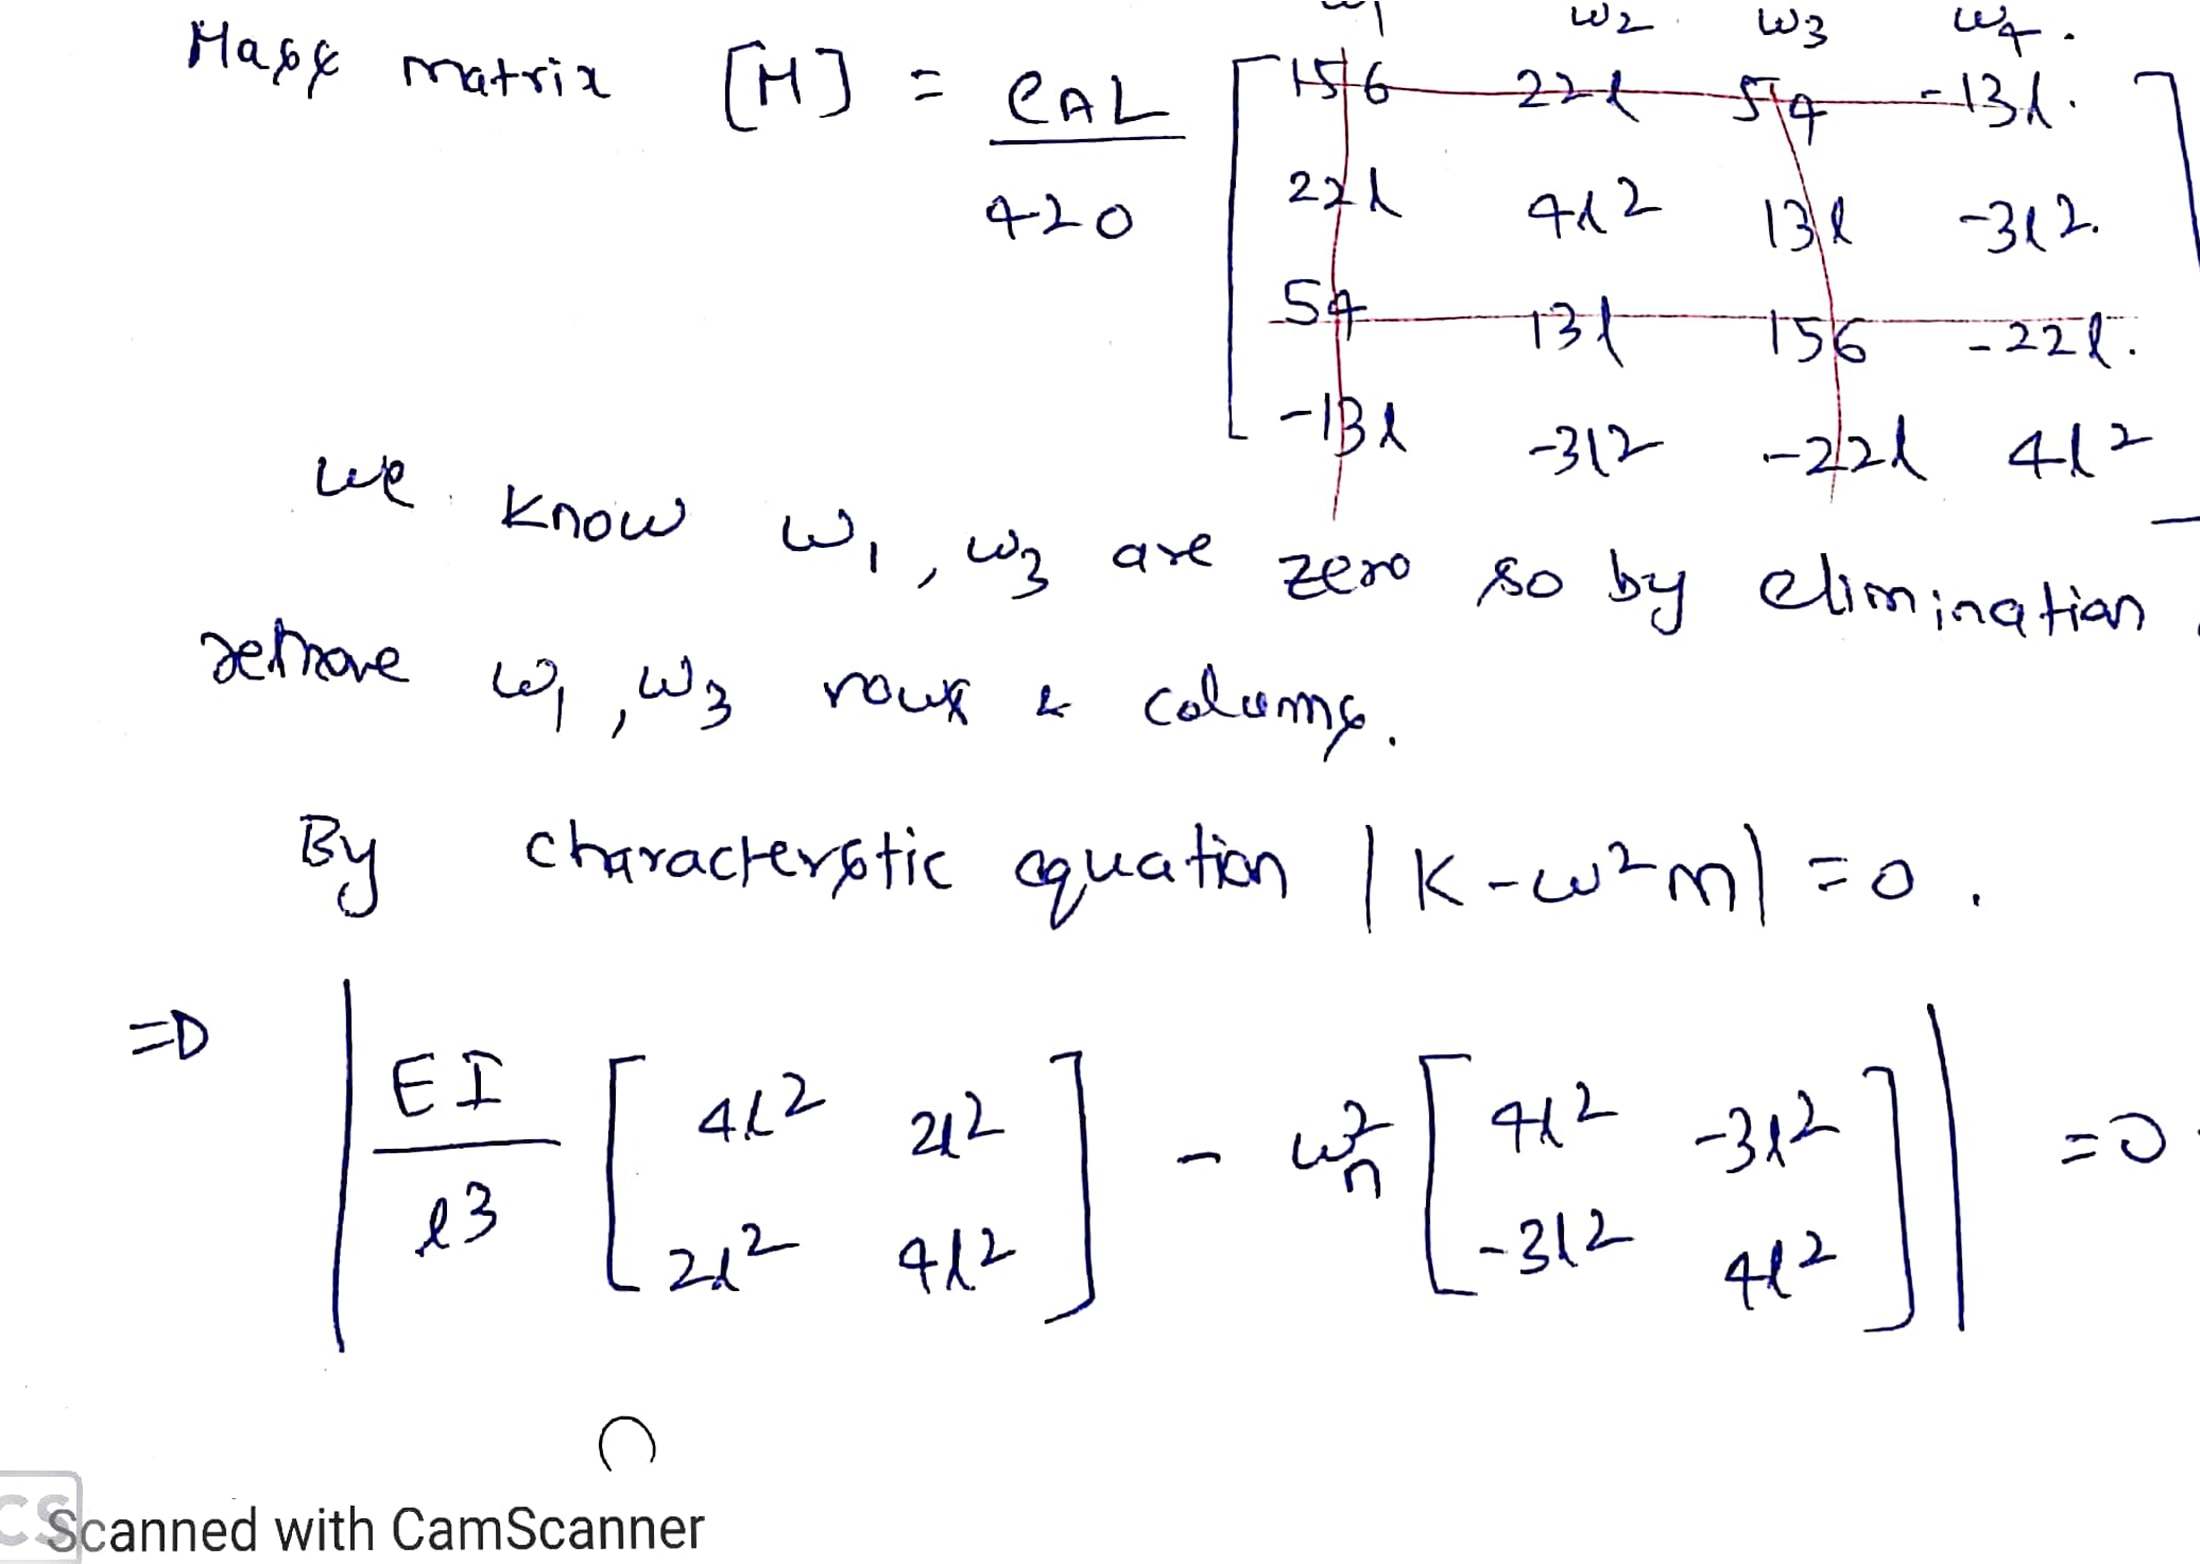 w1 w2 w3 w4.
Mass matrix [M] = ρAL / 420 [ 156 22l 54 -13l.
22l 4l2 13l -3l2.
54 13l 156 -22l.
-13l -3l2 -22l 4l2 ]
we know w1, w3 are zero so by elimination
remove w1, w3 rows & colums.
By characterstic equation |K-ω2m| =0.
=> | EI / l3 [ 4l2 2l2 ] - ω2n [ 4l2 -3l2 ] | =0
[ 2l2 4l2 ] [ -3l2 4l2 ]
CS Scanned with CamScanner